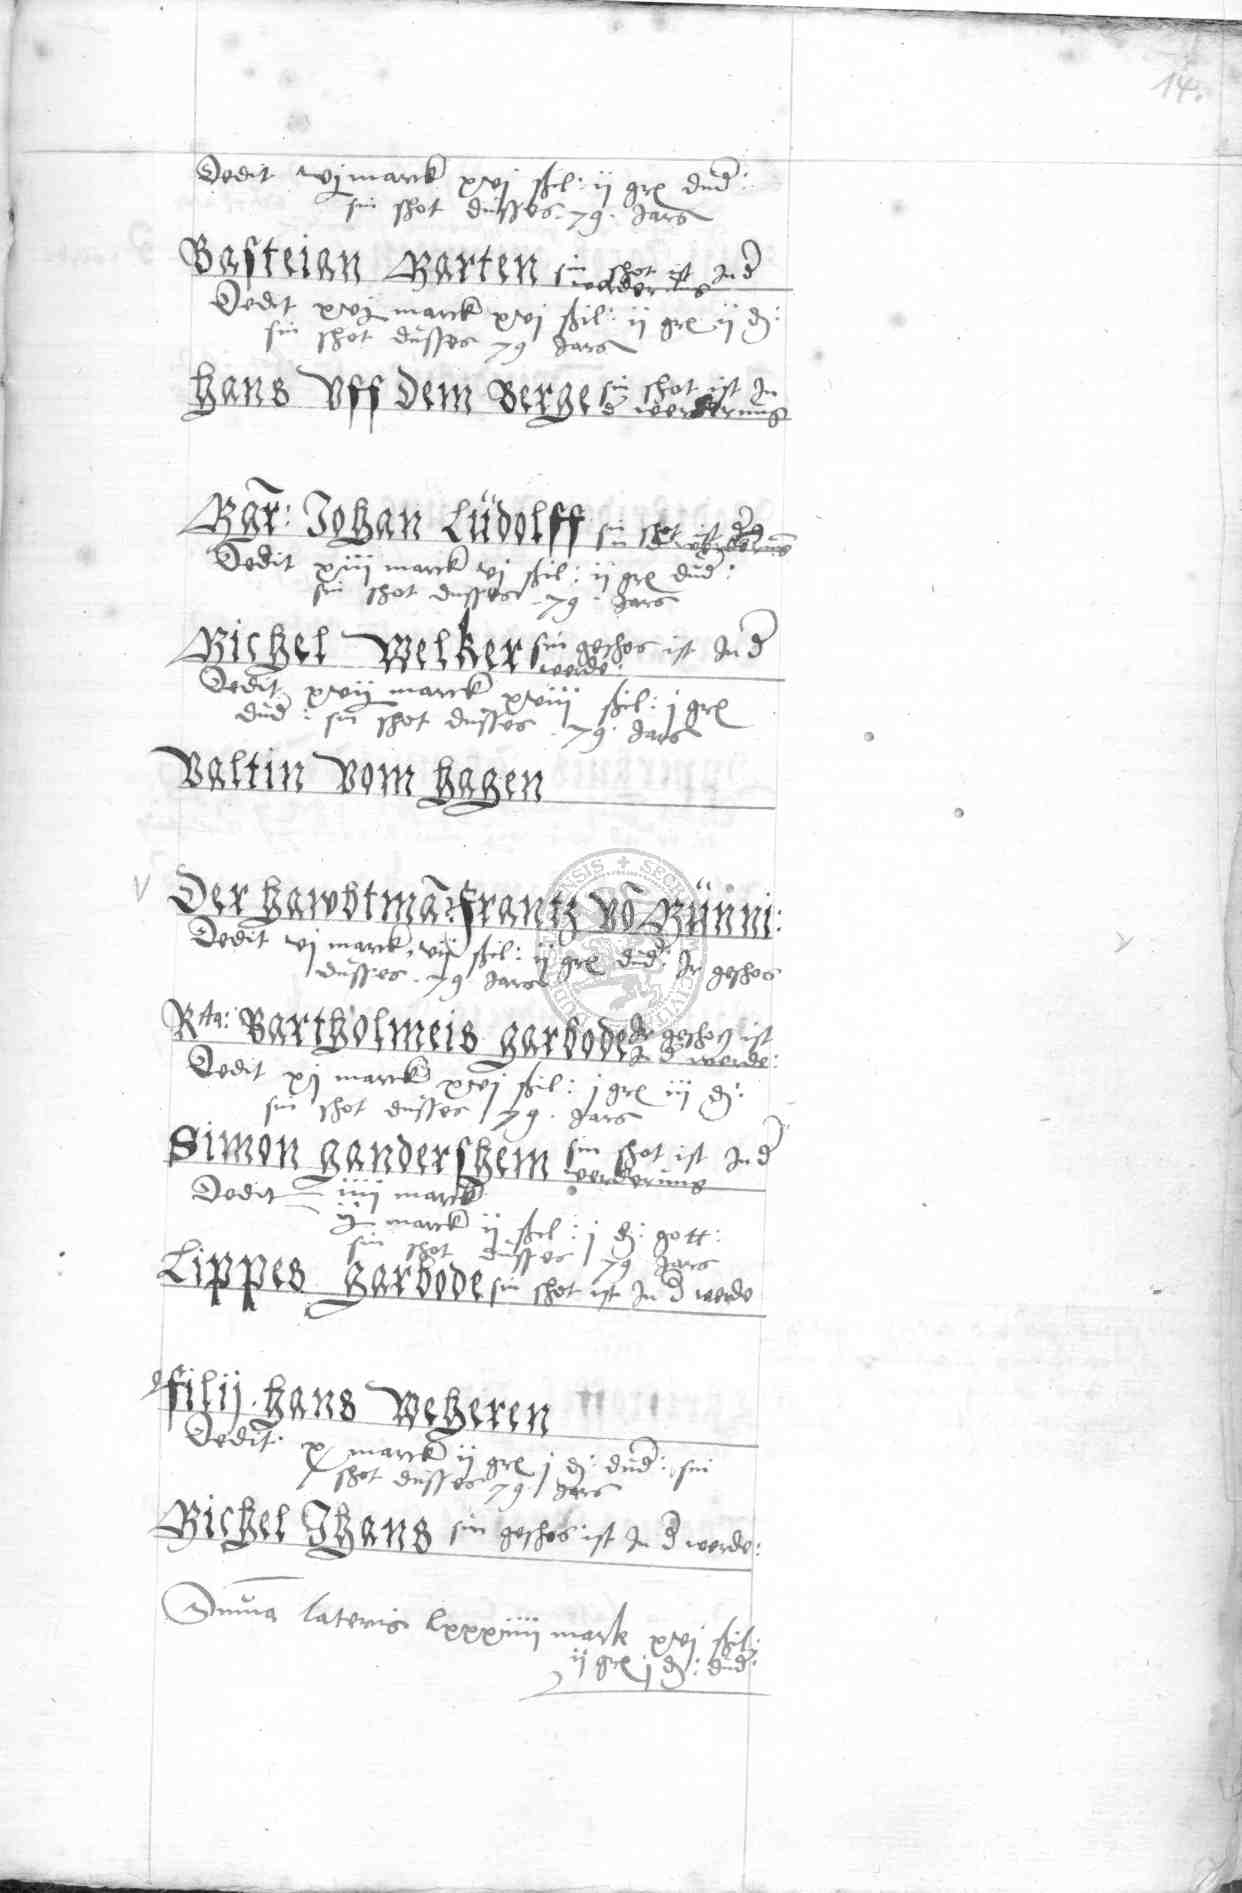 14.
Dedit vij marck xvj ßil: ij gre dud:
sin schot dusses 79 Jars
Basteian Marten sin schot ist In d
werderung
Dedit xvij marck xvj ßil: ij gre ij d:
sin schot dusses 79 Jars
hans Vff Dem Berge sin schot ist In
d werderung
Mar: Johan Lüdolff sin schot ist
Dedit xiij marck vj ßil: ij gre dud:
sin schot dusses 79 Jars
Michel Welker sin geschos ist In d
werde:
Dedit xvij marck xviij ßil: j gre
dud: sin schot dusses 79 Jars
Valtin Vom hagen
Der hawbtmañ: frantz Võ Münni:
Dedit vj marck vij ßil: ij gre dud: Ir geschos
dusses 79 Jars
Rta: Bartholmeis garbode Ir geschos ist
In d werde:
Dedit xj marck xvj ßil: j gre iij d:
sin schot dusses 79 Jars
Simon gandershem sin schot ist In d
werderung
Dedit iiij marck
ij marck ij ßil: j d: gott:
sin schot dusses 79 Jars
Lippes garbode sin schot ist In d werde
filij. hans Weheren
Dedit: x marck ij gre j d: dud: sin
schot dusses 79 Jars
Michel Jhans sin geschos ist In d werde:
Suma lateris lxxxiiij mark xvj ßil:
ij gre j d: dud: